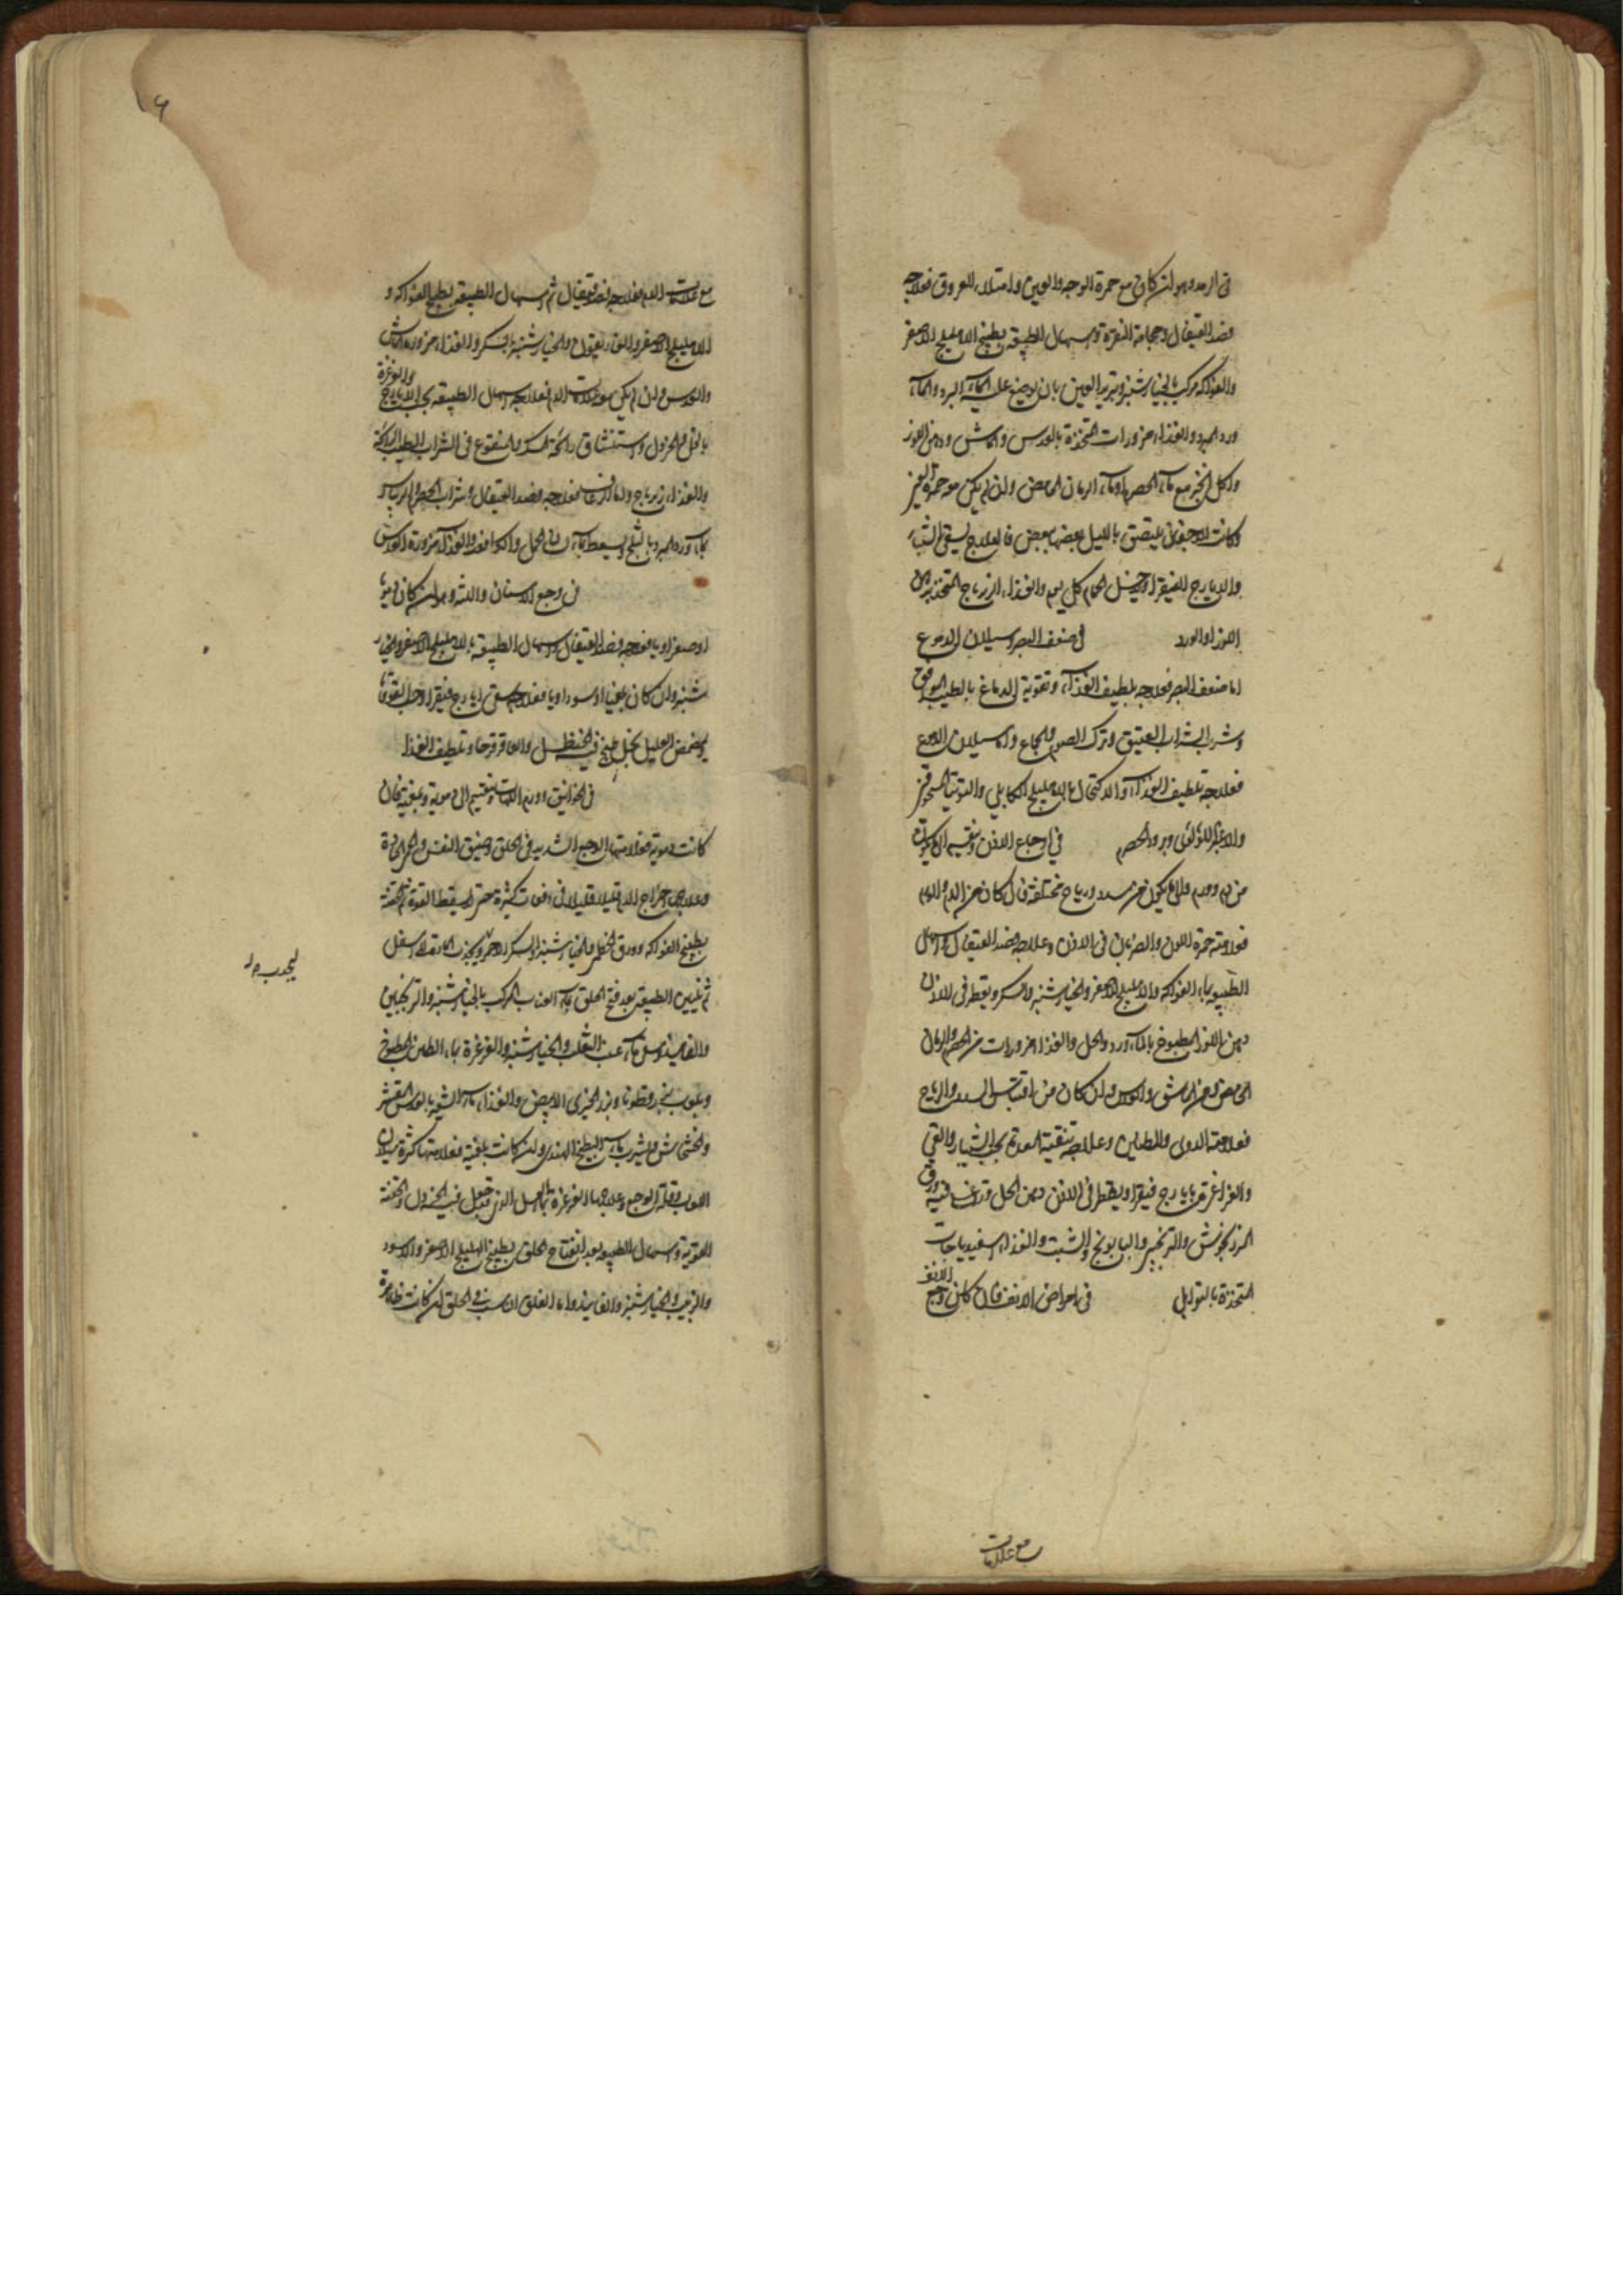 في الرمد وهو ان كان مع حمرة الوجه والعين وامتلاء العروق فعلاجه
فصد القيفال وحجامة النقرة واسهال الطبيعة بطبيخ الاهليلج الاصفر
والفواكه مركب بالخيارشنبر وتبريد العين بان يوضع عليه الماء المبرد والماء
ورد المبرد والغذاء مزورات المتخذة بالعدس والماش ودهن اللوز
واكل الخبز مع ماء الحصرم او ماء الرمان الحامض وان لم يكن مع حمرة العين
وكانت الاجفان يلتصق بالليل بعضها ببعض فالعلاج يسقى الشبيار
والايارج الفيقرا ودخول الحمام كل يوم والغذاء الزيرباج المتخذ بدهن
اللوز او الورد في ضعف البصر وسيلان الدموع
اما ضعف البصر فعلاجه بلطيف الغذاء وتقوية الدماغ بالطيب الموافق
وشرب الشراب العتيق وترك الصوم والجماع واما سيلان الدموع
فعلاجه تلطيف الغذاء والاكتحال بالاهليلج الكابلي والتوتيا المسحوق
والاغبر اللؤلؤى وبرود الحصرم في اوجاع الاذن وينقسم الى ما يكون
من دم وورم والى ما يكون من سدد ورياح مختلفة فان كان من الدم والورم
فعلامته حمرة اللون والضربان في الاذن وعلاجه فصد القيفال واسهال
الطبيعة بماء الفواكه والاهليلج الاصفر والخيارشنبر والسكر ويقطر في الاذن
دهن اللوز المطبوخ بالماء ورد والخل والغذاء مزورات من الحصرم والرمان
الحامض ومن الماش والعدس وان كان من احتباس السدد والرياح
فعلامته الدوى والطنين وعلاجه تنقية المعدة بحب الشبيار والقي
والغراغرة بايارج فيقرا ويقطر في الاذن دهن الخل وقد اغلى فيه ورق
المرزنجوش والبابونج والشبت والغذاء اسفيدباجات
المتخذة بالتوابل في امراض الانف فان كان وجع الانف
مع علامات
مع علامات الدم فعلاجه فصد القيفال ثم اسهال الطبيعة بطبيخ الفواكه و
الاهليلج الاصفر والخيارشنبر بالسكر والغذاء مزورة ماش
والعدس وان لم يكن مع علامات الدم فعلاجه اسهال الطبيعة بحب الايارج والغرغرة
بالخل والخردل واستنشاق رائحة المسك والمنقوع في الشراب الطيب الرائحة
والغذاء زيرباج واما الرعاف فعلاجه فصد القيفال وشراب الحصرم والريباس
بماء ورد المبرد بالثلج ويسعط بماء لسان الحمل والكافور والغذاء مزورة العدس
في وجع الاسنان واللثة وهو ان كان دمويا
او صفراويا فعلاجه فصد القيفال واسهال الطبيعة بالاهليلج الاصفر والخيار
شنبر وان كان بلغميا او سوداويا فعلاجه يسقى ايارج فيقرا وحب القوقايا
ويمضمض العليل بخل طبخ فيه الحنظل والعاقرقرحا وتلطيف الغذا
في الخوانيق وورم اللهاة وينقسم الى دموية وبلغمية فان
كانت دموية فعلامتها الوجع الشديد في الحلق وضيق النفس والحمى الحادة
وعلاجه اخراج الدم قليلا قليلا في دفعات كثيرة حتى لا يسقط القوة ثم الحقنة
بطبيخ الفواكه وورق الخطمى والخيارشنبر والسكر الاحمر ويجذب المادة الى اسفل
ليجذب
ثم تليين الطبيعة بعد فتح الحلق بماء العناب المركب بالخيارشنبر والترنجبين
والفانيذ ومن ماء عنب الثعلب والخيارشنبر والغرغرة بماء الطين المطبوخ
ولعوب بزرقطونا وبزر الخيرى الابيض والغذاء ماء الشعير بالعدس المقشر
والخشخاش ويشرب ماء البطيخ الهندى وان كانت بلغمية فعلامتها كثرة سيلان
اللعاب وقلة الوجع وعلاجها الغرغرة بالعسل الذى قد جعل فيه الخردل والحقنة
القوية واسهال الطبيعة بعد انفتاح الحلق بطبيخ الهليلج الاصفر والاسود
والزبيب والخيارشنبر والفانيذ واما العلق الناشب في الحلق ان كانت ظاهرة